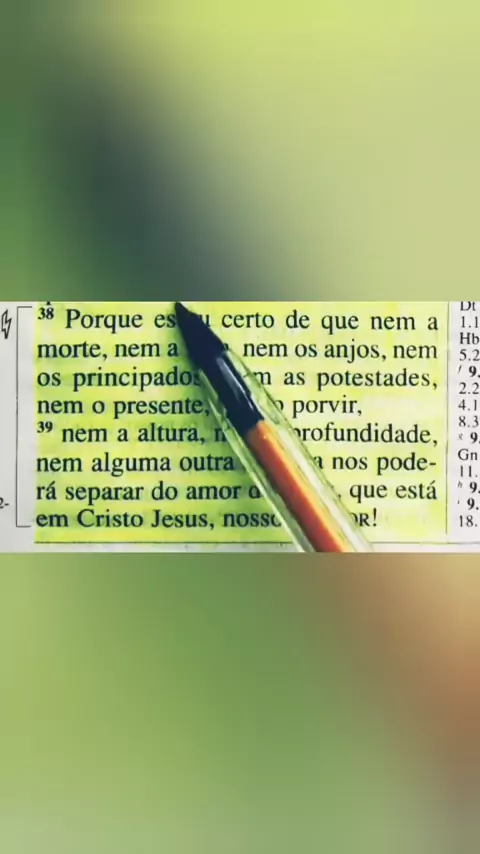 38 Porque certo de que nem a
morte, nem a nem os anjos, nem
os principados as potestades,
nem o presente, porvir,
39 nem a altura, profundidade,
nem alguma outra nos pode-
rá separar do amor que está
em Cristo Jesus, nosso !
1.1
Hb
5.2
9.
2.2
4.1
8.3
9.
Gn
11.
9.
9.
18.